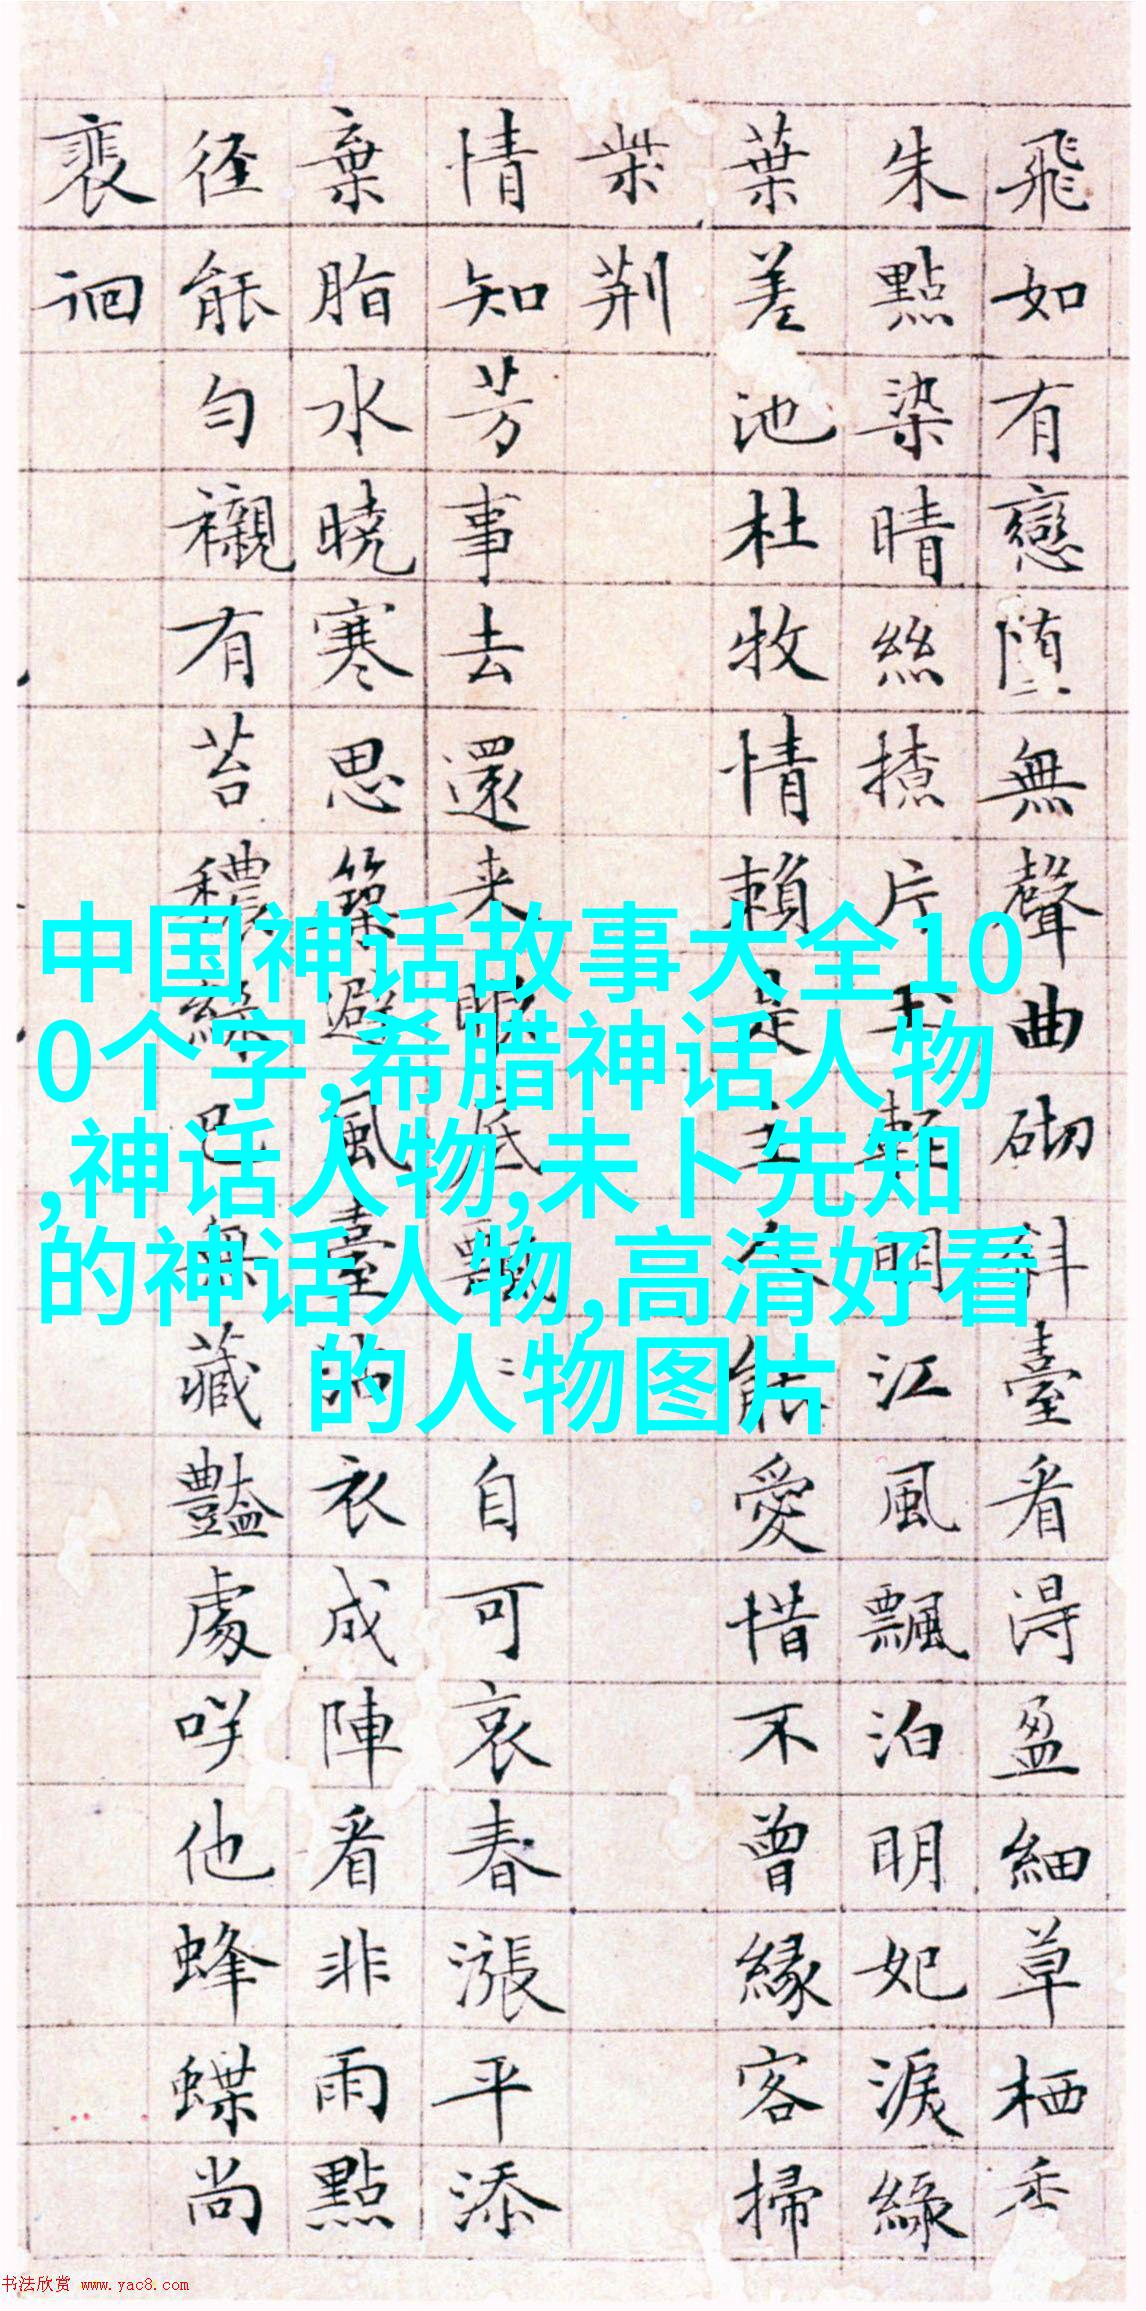 飛如有戀堕無聲曲砌斜臺看淂盈細草栖
朱點染晴絲揸片玉輕明江風飄泊明妃淚綠
葉差池杜牧情賴是主人能愛惜不曾緣客掃
柴荆
情知芳事去還来眼底飄〻自可哀春漲平添
棄脂水曉寒思築避風臺沾衣成陣看非雨點
徑能勻襯有苔穠綠已無藏豔處咲他蜂蝶尚
裴徊
中国神话故事大全10
0个字,希腊神话人物
,神话人物,未卜先知
的神话人物,高清好看
的人物图片
书法欣赏 www.yac8.com